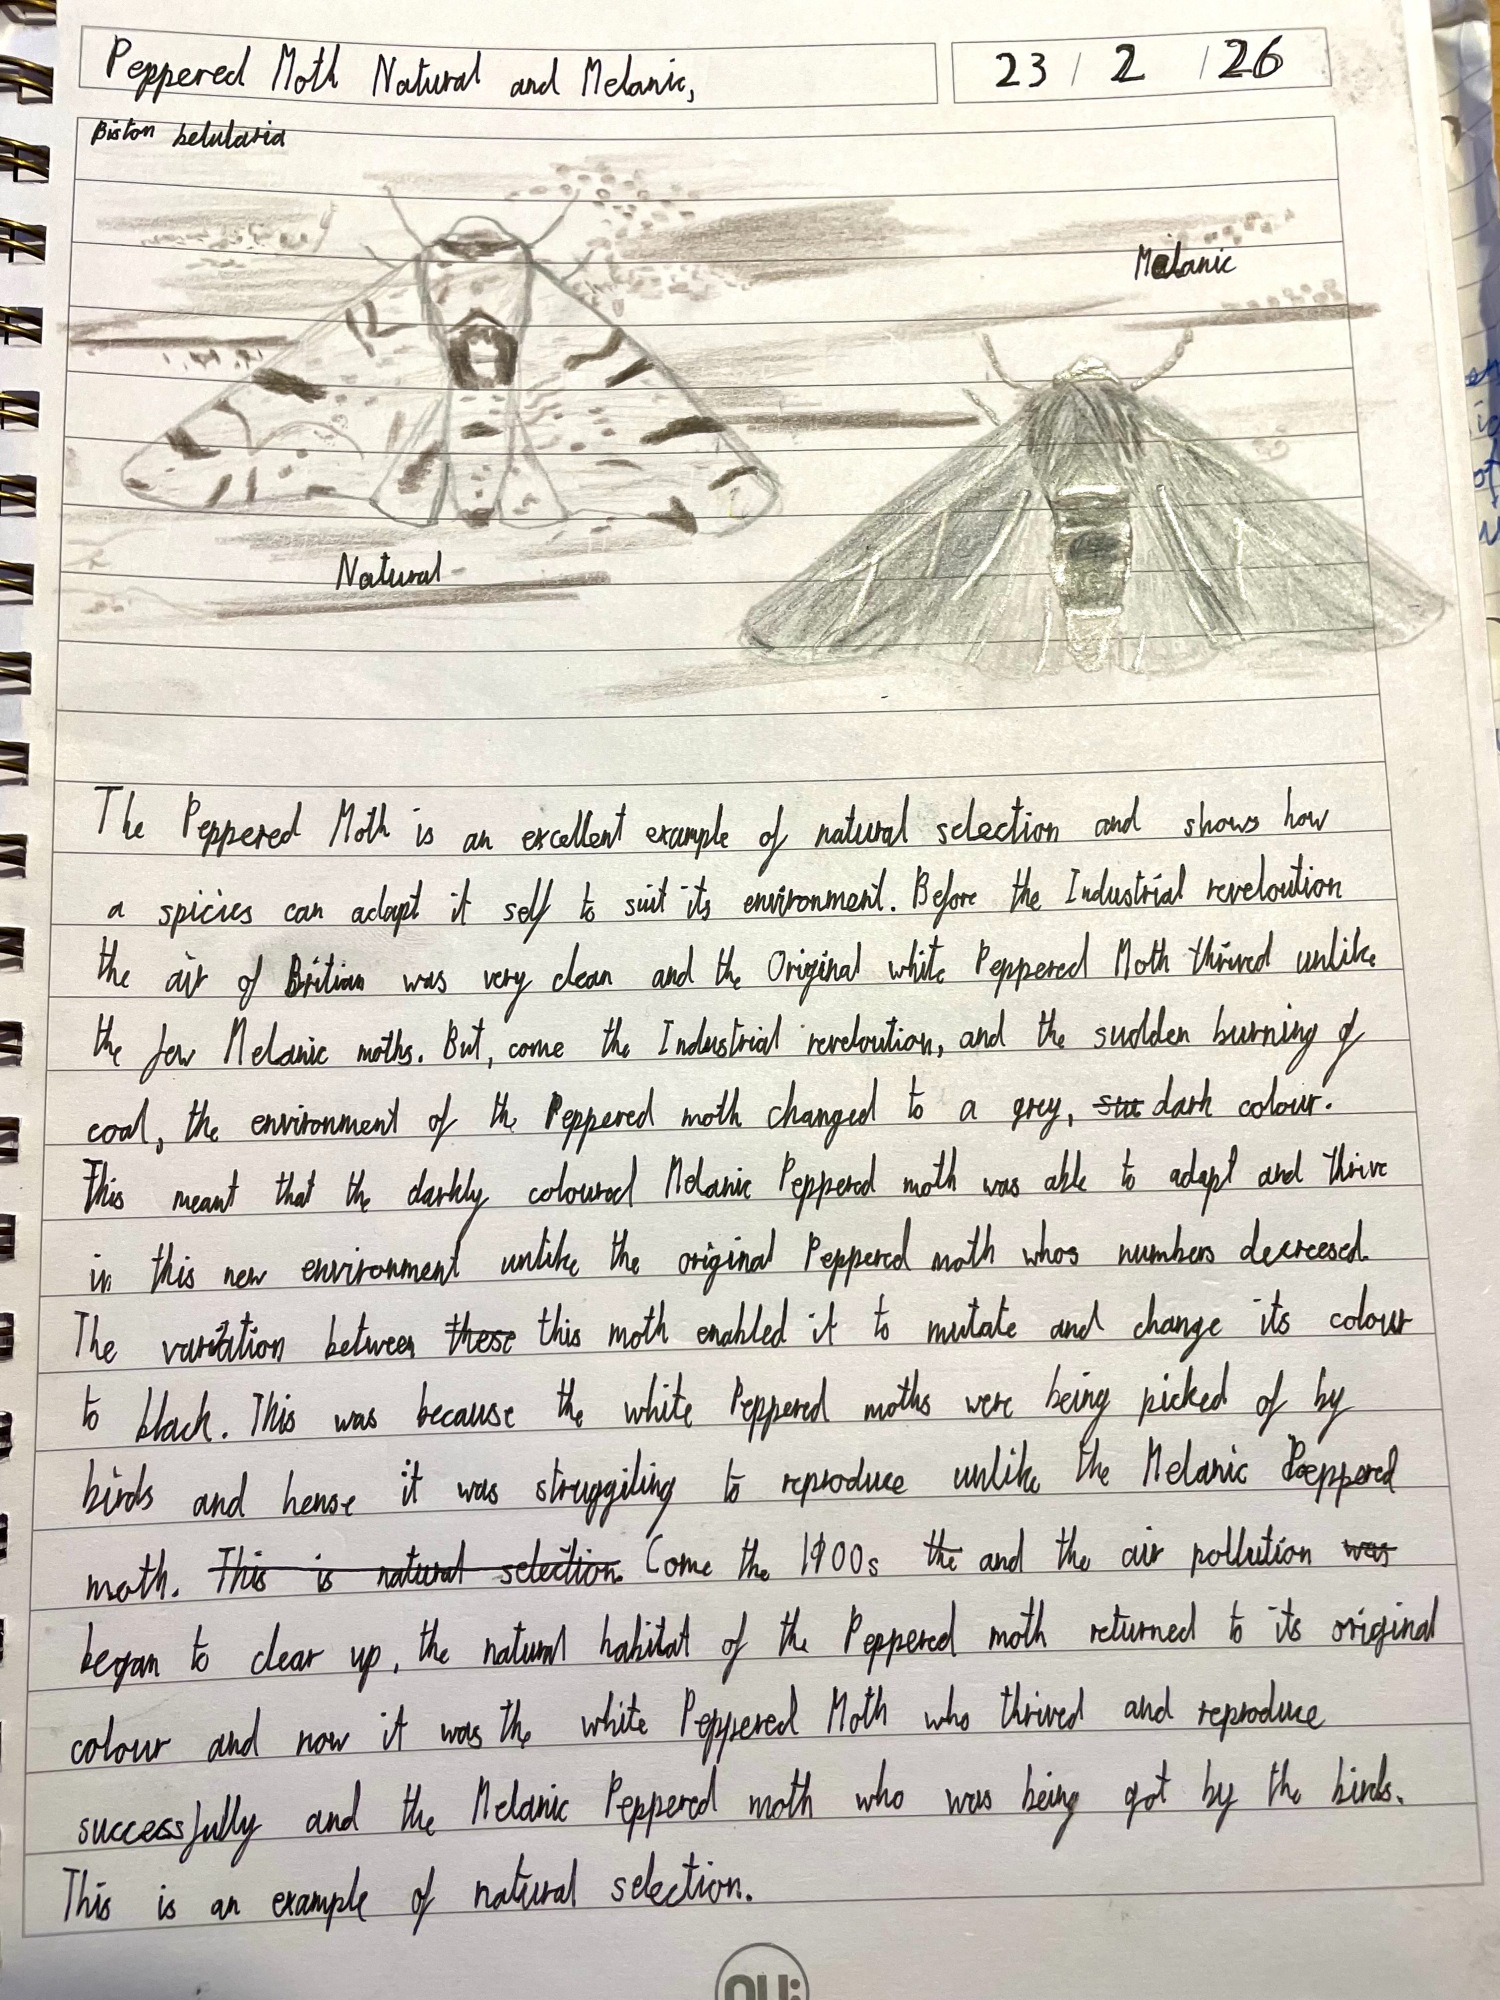 Peppered Moth Natural and Melanic,
23 / 2 / 26
Biston betularia
Melanic
Natural
The Peppered Moth is an excellent example of natural selection and shows how
a spicies can adapt it self to suit its environment. Before the Industrial reveloution
the air of Britian was very clean and the Original white Peppered Moth thrived unlike
the few Melanic moths. But, come the Industrial reveloution, and the sudden burning of
coal, the environment of the Peppered moth changed to a grey, dark colour.
This meant that the darkly coloured Melanic Peppered moth was able to adapt and thrive
in this new environment unlike the original Peppered moth whos numbers decreesed.
The variation between these this moth enabled it to mutate and change its colour
to black. This was because the white Peppered moths were being picked of by
birds and hense it was struggiling to reproduce unlike the Melanic Peppered
moth. This is natural selection. Come the 1900s the and the air pollution was
began to clear up, the natural habitat of the Peppered moth returned to its original
colour and now it was the white Peppered Moth who thrived and reproduce
successfully and the Melanic Peppered moth who was being got by the birds.
This is an example of natural selection.